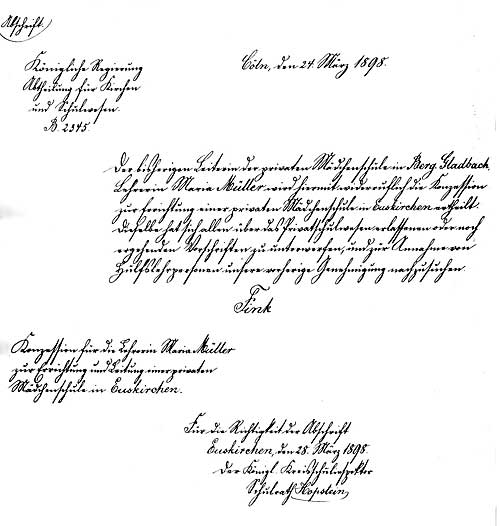 Abschrift.
Königliche Regierung
Abtheilung für Kirchen
und Schulwesen.
B. 2345.
Cöln, den 24. März 1898.
Der bisherigen Leiterin der privaten Mädchenschule in Berg. Gladbach,
Lehrerin Maria Müller, wird hiermit widerruflich die Konzession
zur Errichtung einer privaten Mädchenschule in Euskirchen ertheilt.
Dieselbe hat sich allen über das Privatschulwesen erlassenen oder noch
ergehenden Vorschriften zu unterwerfen, und zur Annahme von
Hülfslehrpersonen unsere vorherige Genehmigung nachzusuchen.
Fink
Konzession für die Lehrerin Maria Müller
zur Errichtung und Leitung einer privaten
Mädchenschule in Euskirchen.
Für die Richtigkeit der Abschrift
Euskirchen, den 28. März 1898.
Der Königl. Kreisschulinspektor
Schulrath Hopstein